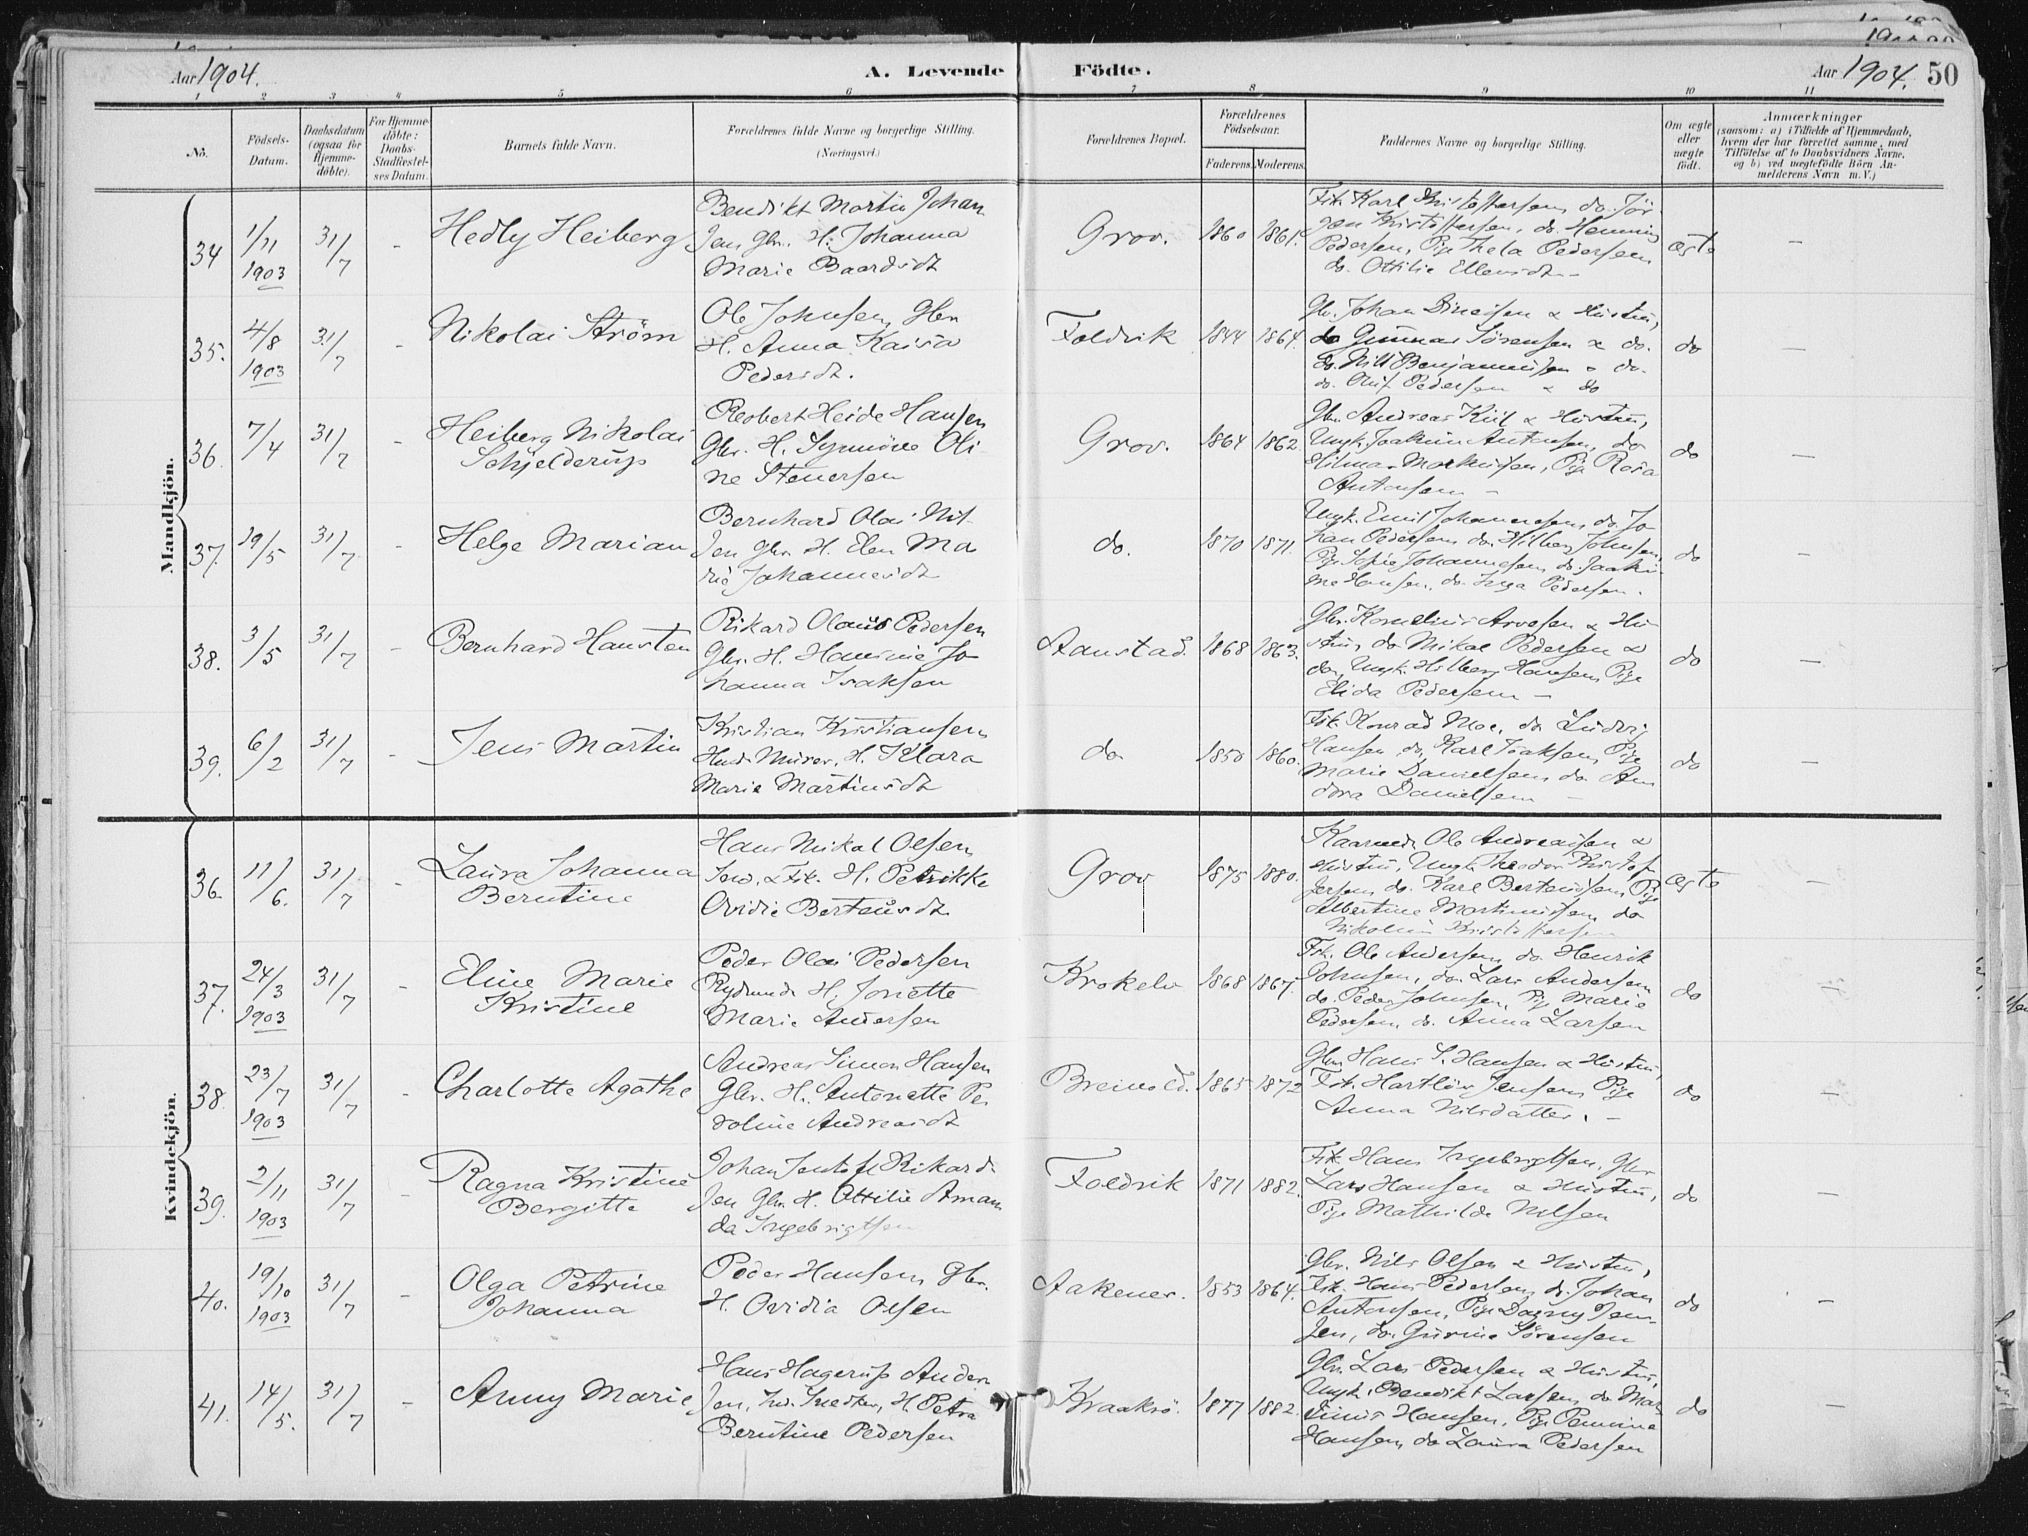 Aar 1904.
A. Levende Födte.
Aar 1904. 50
1 2 3 4 5 6 7 8 9 10 11
No.
Födsels-
Datum.
Daabsdatum
(ogsaa for
Hjemme-
döbte).
For Hjemme-
döbte:
Daabs-
Stadfæstel-
ses Datum.
Barnets fulde Navn.
Forældrenes fulde Navne og borgerlige Stilling.
(Næringsvei.)
Forældrenes Bopæl.
Forældrenes
Födselsaar.
Faderens. Moderens.
Faddernes Navne og borgerlige Stilling.
Om ægte
eller
uægte
födt.
Anmærkninger
(saasom: a) i Tilfælde af Hjemmedaab,
hvem der har forrettet samme, med
Tilföielse af to Daabsvidners Navne,
og b) ved uægtefödte Börn An-
melderens Navn m. V.)
Mandkjön.
34 1/11 1903 31/7 -
Hedly Heiberg
Bendikt Martin Johan
sen Gbr. H. Johanna
Marie Baardsdt
Grov. 1860 1861.
Fsk. Karl Kristoffersen, do. Jör
gen Kristoffersen, do. Henning
Pedersen, Pige Thela Pedersen
do. Ottilie Ellevsdt -
ægte -
35. 4/8 1903 31/7 -
Nikolai Ström
Ole Johnsen, Gbr
H. Anna Kaisa
Pedersdt.
Foldvik 1844 1864.
Gbr. Johan Dineisen & Hustru,
do Gunnar Sörensen & do.
do. Nill Benjaminsen & do.
do. Pedersen & do
do -
36. 7/4 31/7 -
Heiberg Nikolai
Schjelderup
Robert Heide Hansen
Gbr. H. Synnöve Oli-
ne Stenersen
Grov. 1864 1862.
Gbr. Andreas Kiil & Hustru,
Ungk. Joakim Antonsen, do
Hilmar Markusen, Pige Rosa
Antonsen -
do -
37. 19/5 31/7 -
Helge Marian
Bernhard Olai Nil-
sen Gbr H. Elen Ma
rie Johannesdt
do. 1870 1871.
Ungk. Emil Johannesen, do. Jo
han Pedersen, do. Hilberg Johnsen,
Pige Sofie Johannesen, do. Joaki-
ne Hansen, do. Inga Pedersen.
do -
38. 3/5 31/7 -
Bernhard Hansten
Rikard Olaus Pedersen
Gbr. H. Hansine Jo
hanna Isaksen
Aanstad. 1868 1863.
Gbr. Kornelius Arvesen & Hu-
stru, do Mikal Pedersen &
do, Ungk. Hilberg Hansen, Pige
Elida Pedersen -
do -
39. 6/2 31/7 -
Jens Martin
Kristian Kristiansen
Husm. Murer, H. Klara
Marie Martinsdt
do 1850 1860.
Fsk. Konrad Moe, do Ludvig
Hansen, do, Karl Isaksen, Pige
Marie Danielsen, do An
dora Danielsen -
do -
Kvindekjön.
36. 11/6. 31/7 -
Laura Johanna
Berntine
Hans Nikal Olsen,
Ind. & Fsk. H. Petrikke
Ovidie Berteusdt
Grov 1875 1880.
Kaarmd. Ole Andreassen &
Hustru, Ungk. Theodor Kristof
fersen, do. Karl Berteussen, Pige
Albertine Martinussen, do
Nikoline Kristoffersen
ægte -
37. 24/3 1903 31/7 -
Eline Marie
Kristine
Peder Olai Pedersen
Rydmd. H. Jonette
Marie Andersen
Krokelv 1868 1867.
Fsk. Ole Andersen, do Henrik
Johnsen, do. Lars Andersen
do. Peder Johnsen, Pige Marie
Pedersen, do. Anna Larsen
do -
38. 23/7 1903 31/7 -
Charlotte Agathe
Andreas Simon Hansen
Gbr. H. Antonette Pe-
roline Andreasdt
Breivold. 1865 1872
Gbr. Hans S. Hansen & Hustru,
Fsk. Hartlöv Jensen, Pige
Anna Nilsdatter. -
do -
39. 2/11 1903 31/7 -
Ragna Kristine
Bergitte
Johan Jentoft Rikard-
sen Gbr. H. Ottilie Aman
da Ingebrigtsen
Foldvik 1871 1882.
Fsk. Hans Ingebrigtsen, Gbr
Lars Hansen & Hustru,
Pige Mathilde Nilsen
do -
40. 19/10 1903 31/7 -
Olga Petrine
Johanna
Peder Hansen, Gbr.
H. Ovidia Olsen
Aakenes. 1853 1864.
Gbr. Nils Olsen & Hustru,
Fsk. Hans Pedersen, do. Johan
Antonsen, Pige Dagny Jen-
sen, do. Gurine Sörensen
do -
41. 14/5. 31/7 -
Anny Marie
Hans Hagerup Ander
sen, Ind. Snedker, H. Petra
Berntine Pedersen
Kraakrö. 1877 1882.
Gbr. Lars Pedersen & Hustru,
Ungk. Benedikt Larsen, do. Mar-
tinus Hansen, Pige Pernine
Hansen, do Laura Pedersen
do -